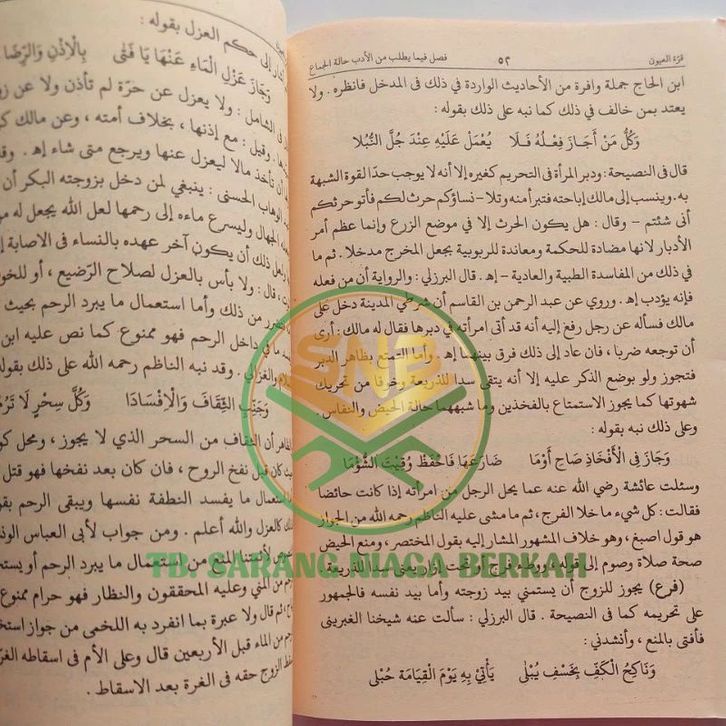 قرّة العيون ٥٢ فصل فيما يطلب من الأدب حالة الجماع
ابن الحاج جملة وافرة من الأحاديث الواردة فى ذلك فى المدخل فانظره . ولا
يعتد بمن خالف في ذلك كما نبه على ذلك بقوله :
وَكُلُّ مَنْ أَجَازَ فِعْلُهُ فَلَا يُعْمَلْ عَلَيْهِ عِنْدَ جُلِّ النُّبُلَا
قال فى النصيحة : ودبر المرأة فى التحريم كغيره إلا أنه لا يوجب حدّا لقوة الشبهة
به . وينسب إلى مالك إباحته فتبرأ منه وتلا - نساؤكم حرث لكم فأتوا حرثكم
أنى شئتم - وقال : هل يكون الحرث إلا في موضع الزرع وإنما عظم أمر
الأدبار لانها مضادة للحكمة ومعاندة للربوبية بجعل المخرج مدخلا . ثم ما
في ذلك من المفاسدة الطبية والعادية - إهـ . قال البرزلي : والرواية أن من فعله
فإنه يؤدب إهـ . وروي عن عبد الرحمن بن القاسم أن شرطي المدينة دخل على
مالك فسأله عن رجل رفع إليه أنه قد أتى امرأته في دبرها فقال له مالك : أرى
أن توجعه ضربا ، فان عاد إلى ذلك فرق بينهما إهـ . وأما التمتع بظاهر الدبر
فتجوز ولو بوضع الذكر عليه إلا أنه يتقى سدا للذريعة وخوفا من تحريك
شهوتها كما يجوز الاستمتاع بالفخذين وما شبههما حالة الحيض والنفاس .
وعلى ذلك نبه بقوله :
وَجَازَ فِي الْأَفْخَاذِ صَاحِ أَوْمَا ضَارَعَهَا فَاحْفَظْ وُقِيْتَ الشُّوْمَا
وسئلت عائشة رضي الله عنه عما يحل الرجل من امرأته إذا كانت حائضا
فقالت : كل شيء ما خلا الفرج ، ثم ما مشى عليه الناظم رحمه الله من الجواز
هو قول اصبغ ، وهو خلاف المشهور المشار إليه بقول المختصر ، ومنع الحيض
صحة صلاة وصوم إلى قوله ، ووطء فرج أو تحت إزار يعنى سدا للذريعة .
(فرع) يجوز للزوج أن يستمني بيد زوجته وأما بيد نفسه فالجمهور
على تحريمه كما فى النصيحة . قال البرزلي : سألت عنه شيخنا الغبريني
فأفتى بالمنع ، وأنشدني :
وَنَاكِحُ الْكَفِّ بِخَسْفٍ يُبْلَى يَأْتِيْ بِهِ يَوْمَ الْقِيَامَةِ حُبْلَى
إلى حكم العزل بقوله :
وَجَازَ عَزْلُ الْمَاءِ عَنْهَا يَا فَتَى بِالْاِذْنِ وَالرِّضَا
فى الشامل : ولا يعزل عن حرّة لم تأذن ولا عن زو
وقيل : مع إذنها ، بخلاف أمته ، وعن مالك
أن تأخذ مالا ليعزل عنها ويرجع متى شاء إهـ .
الوهاب الحسنى : ينبغي لمن دخل بزوجته البكر أن
الجهال وليسرع ماءه إلى رحمها لعل الله يجعل له
ولعل ذلك أن يكون آخر عهده بالنساء فى الاصابة
قال : ولا بأس بالعزل لصلاح الرّضيع ، أو للخو
من ذلك وأما استعمال ما يبرد الرحم بحيث
ما في داخل الرحم فهو ممنوع كما نص عليه ابن
والغزالي . وقد نبه الناظم رحمه الله على ذلك بقوله
وَجَنِّبِ الثِّقَافَ وَالْاِفْسَادَا وَكُلُّ سِحْرٍ لَا
أن الثقاف من السحر الذي لا يجوز ، ومحل
كان قبل نفخ الروح ، فان كان بعد نفخها فهو قتل
استعمال ما يفسد النطفة نفسها ويبقى الرحم
كالعزل والله أعلم . ومن جواب لأبى العباس
لأئمتنا المنع من استعمال ما يبرد الرحم أو
من المني وعليه المحققون والنظار فهو حرام ممنوع
قال ولا عبرة بما انفرد به اللخمى من جواز
من الماء قبل الأربعين قال وعلى الأم فى اسقاطه
الزوج حقه فى الغرة بعد الاسقاط .
SNB
TB. SARANG NIAGA BERKAH